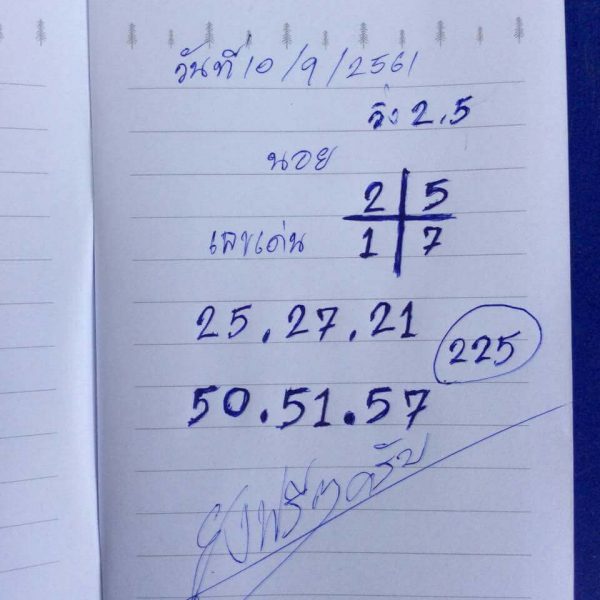 วันที่ 10/9/2561
วิ่ง 2.5
นอย
2 5
เลขเด่น 1 7
25.27.21
225
50.51.57